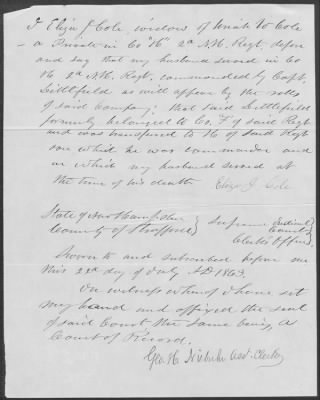 I Eliza J Cole, widow of Uriah W Cole
a Private in Co H. 2d N.H. Regt, depose
and say that my husband served in Co
H 2d N.H. Regt, commanded by Capt,
Littlefield as will appear by the rolls
of said Company; that said Littlefield
formerly belonged to Co. F of said Regt
and was transferred to H of said Regt
over which he was commander and
in which my husband served at
the time of his death Eliza J. Cole
State of New Hampshire } Supreme Judicial
County of Strafford } Court
Clerks Office
Sworn to and subscribed before me
this 22d day of July AD 1863.
In witness whereof I have set
my hand and affixed the seal
of said Court the same being a
Court of Record.
Geo. H. Asst. Clerk